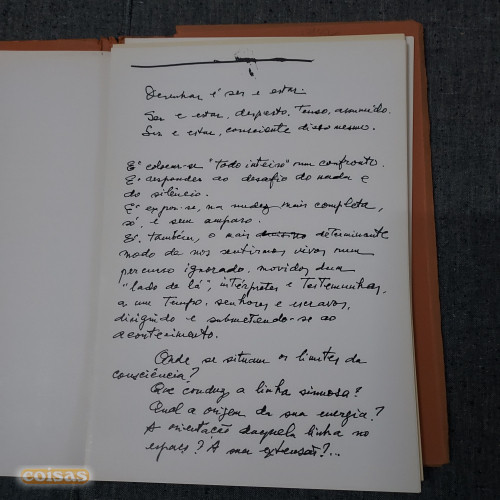 Desenhar é ser e estar.
Ser e estar, desperto, tenso, assumido.
Ser e estar, consciente disso mesmo.
É colocar-se "todo inteiro" num confronto.
É responder ao desafio do nada e
do silêncio.
É expor-se, na nudez mais completa,
só e sem amparo.
É, também, o mais decisivo determinante
modo de nos sentirmos vivos num
percurso ignorado, movidos dum
"lado de lá", intérpretes e testemunhas,
a um tempo, senhores e escravos,
dirigindo e submetendo-se ao
acontecimento.
Onde se situam os limites da
consciência?
Que conduz a linha sinuosa?
Qual a origem da sua energia?
A orientação daquela linha no
espaço? A sua extensão?...
coisas